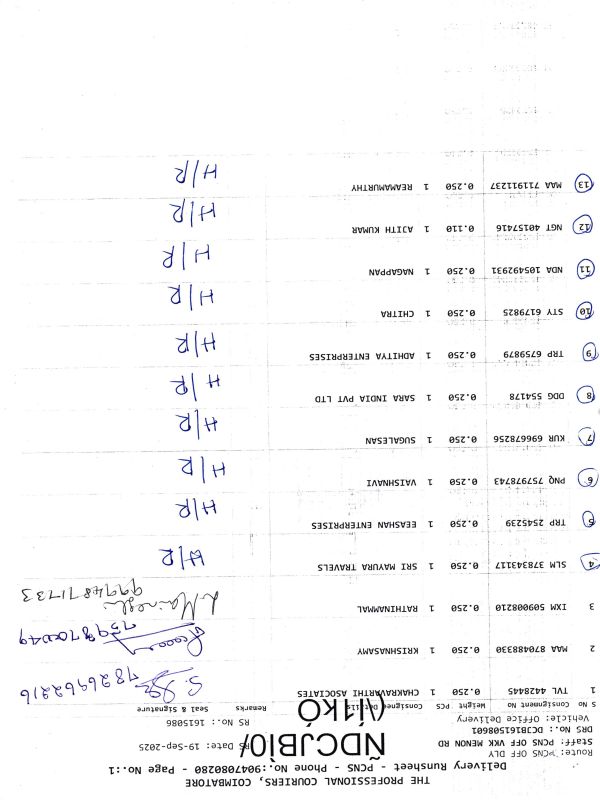 THE PROFESSIONAL COURIERS, COIMBATORE
Delivery Runsheet - PCNS - Phone No.:9047080280 - Page No.:1
Route: PCNS OFF DLY
Staff: PCNS OFF VKK MENON RD
DRS No.: DCJB161508601 RS Date: 19-Sep-2025
Vehicle: Office Delivery RS No.: 1615086
ÑDCJBÌ0/
(\Í1¡KÓ
S No Consignment No Weight PCS Consignee Details Remarks Seal & Signature
1 TVL 4428445 0.250 1 CHAKRAVARTHI ASSOCIATES 7826962216
2 MAA 870488330 0.250 1 KRISHNASAMY
3 IXM 509008210 0.250 1 RATHINAMMAL 9994871733
4 SLM 378343117 0.250 1 SRI MAYURA TRAVELS H/R
5 TRP 2545239 0.250 1 EEASHAN ENTERPRISES H/R
6 PNQ 757978743 0.250 1 VAISHNAVI H/R
7 KUR 696678256 0.250 1 SUGALESAN H/R
8 DDG 554178 0.250 1 SARA INDIA PVT LTD H/R
9 TRP 6759879 0.250 1 ADHITYA ENTERPRISES H/R
10 STY 6179825 0.250 1 CHITRA H/R
11 NDA 105492931 0.250 1 NAGAPPAN H/R
12 NGT 40157416 0.110 1 AJITH KUMAR H/R
13 MAA 711911237 0.250 1 REAMAMURTHY H/R